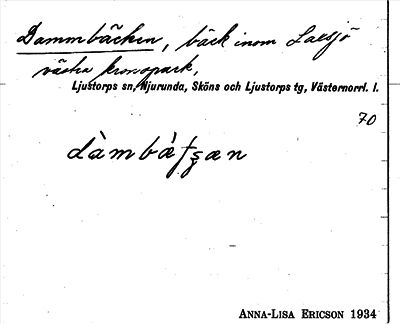 Dammbäcken, bäck inom Laxsjö
västra kronopark,
Ljustorps sn, Njurunda, Sköns och Ljustorps tg, Västernorrl. l.
70
dàmbæ̀ţşæn
ANNA-LISA ERICSON 1934